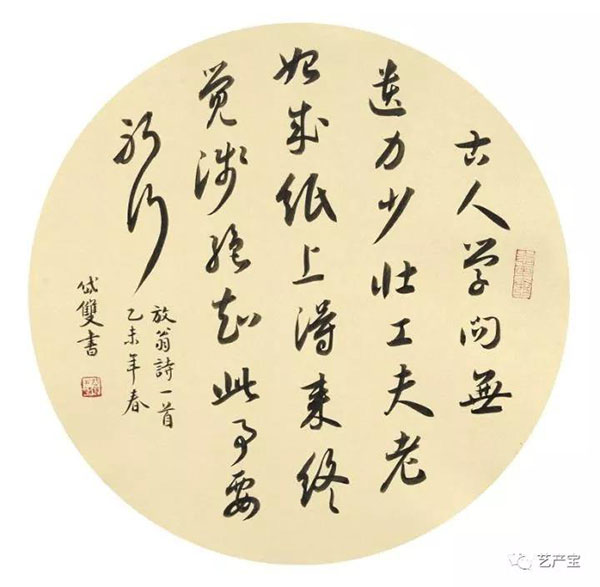 古人学问無
遺力少壮工夫老
始成紙上得来终
觉浅絶知此事要
躬行
放翁詩一首
乙未年春
岱雙書
艺产宝